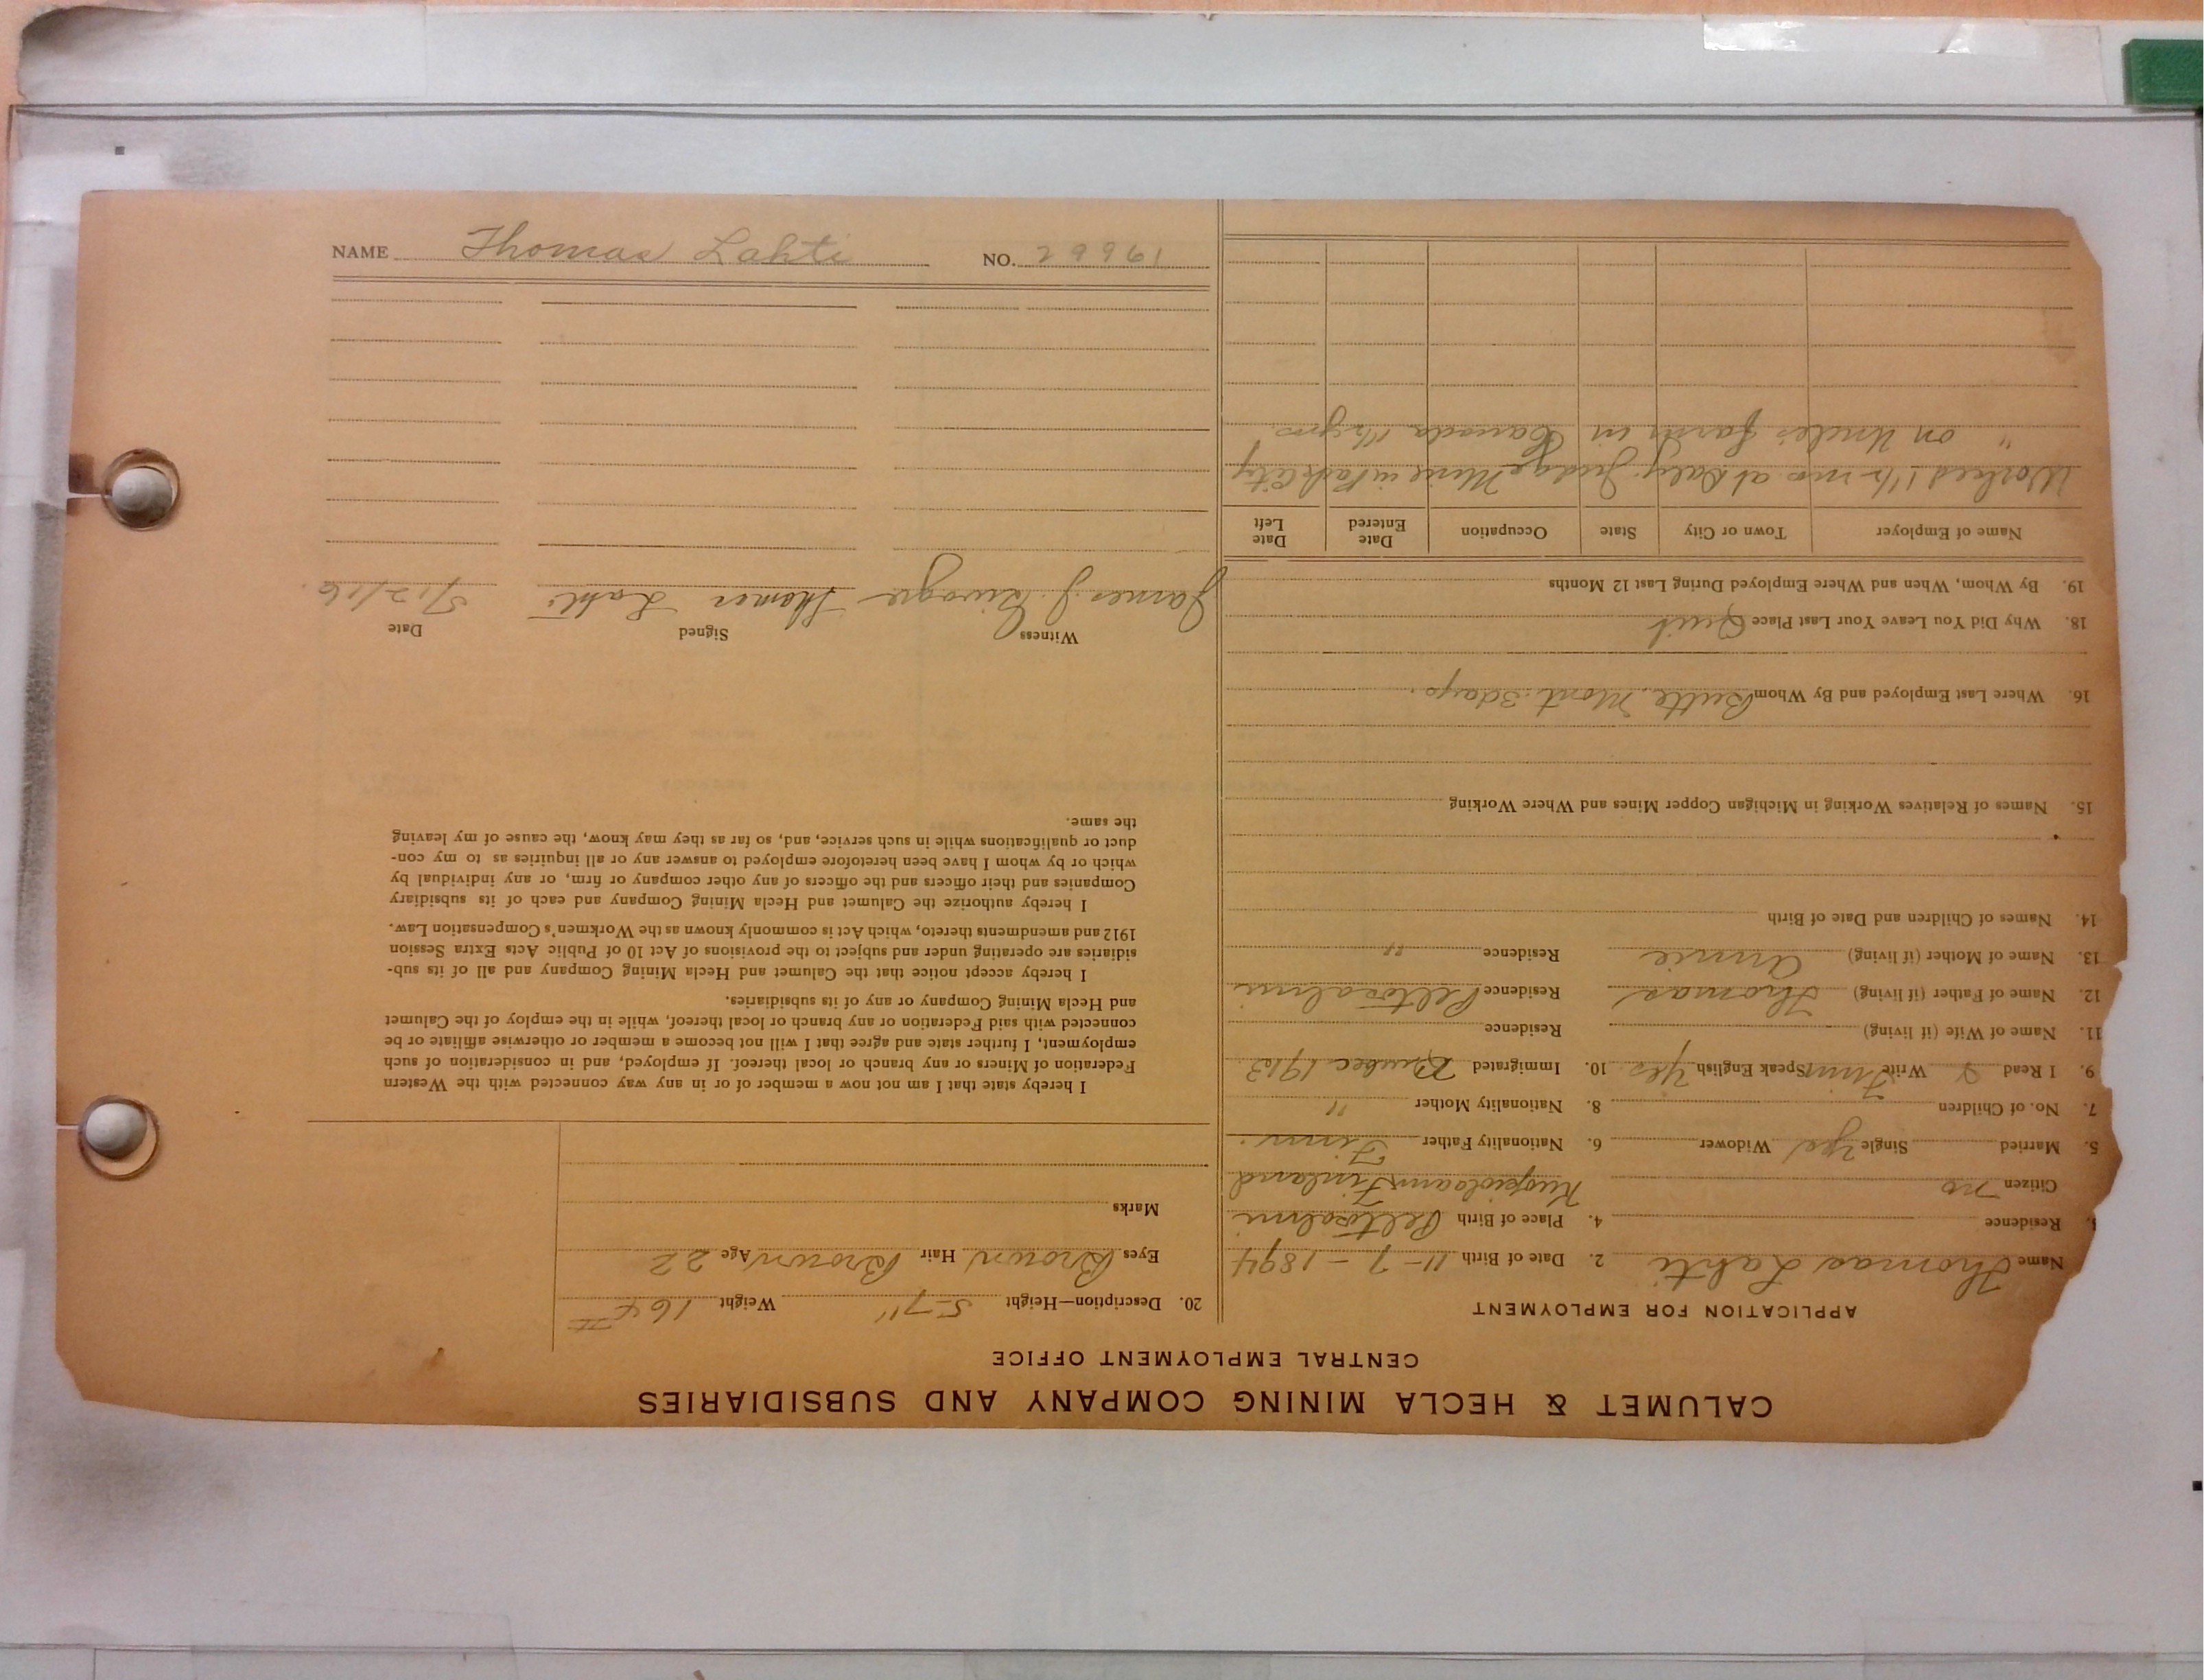 CALUMET & HECLA MINING COMPANY AND SUBSIDIARIES
CENTRAL EMPLOYMENT OFFICE
APPLICATION FOR EMPLOYMENT
Name Thomas Lahti 2. Date of Birth 11-7-1894
Residence 4. Place of Birth Peltosalmi
Citizen no Finland
5. Married Single Yes Widower 6. Nationality Father Finn.
7. No. of Children 8. Nationality Mother "
9. I Read Write Finn Speak English Yes 10. Immigrated Quebec 1913
11. Name of Wife (if living) Residence
12. Name of Father (if living) Thomas Residence Peltosalmi
13. Name of Mother (if living) Annie Residence "
14. Names of Children and Date of Birth
15. Names of Relatives Working in Michigan Copper Mines and Where Working
16. Where Last Employed and By Whom Butte, Mont. 3 days.
18. Why Did You Leave Your Last Place Quit
19. By Whom, When and Where Employed During Last 12 Months
Name of Employer Town or City State Occupation Date Entered Date Left
Worked 1 1/2 mos at Daly Judge Mine in Park City
" on Uncle's farm in Canada 1 1/2 yrs.
20. Description—Height 5-7" Weight 164#
Eyes Brown Hair Brown Age 22
Marks
I hereby state that I am not now a member of or in any way connected with the Western
Federation of Miners or any branch or local thereof. If employed, and in consideration of such
employment, I further state and agree that I will not become a member or otherwise affiliate or be
connected with said Federation or any branch or local thereof, while in the employ of the Calumet
and Hecla Mining Company or any of its subsidiaries.
I hereby accept notice that the Calumet and Hecla Mining Company and all of its sub-
sidiaries are operating under and subject to the provisions of Act 10 of Public Acts Extra Session
1912 and amendments thereto, which Act is commonly known as the Workmen's Compensation Law.
I hereby authorize the Calumet and Hecla Mining Company and each of its subsidiary
Companies and their officers and the officers of any other company or firm, or any individual by
which or by whom I have been heretofore employed to answer any or all inquiries as to my con-
duct or qualifications while in such service, and, so far as they may know, the cause of my leaving
the same.
Witness Signed Date
James J. Thomas Lahti 5/12/16.
NAME Thomas Lahti NO. 29961